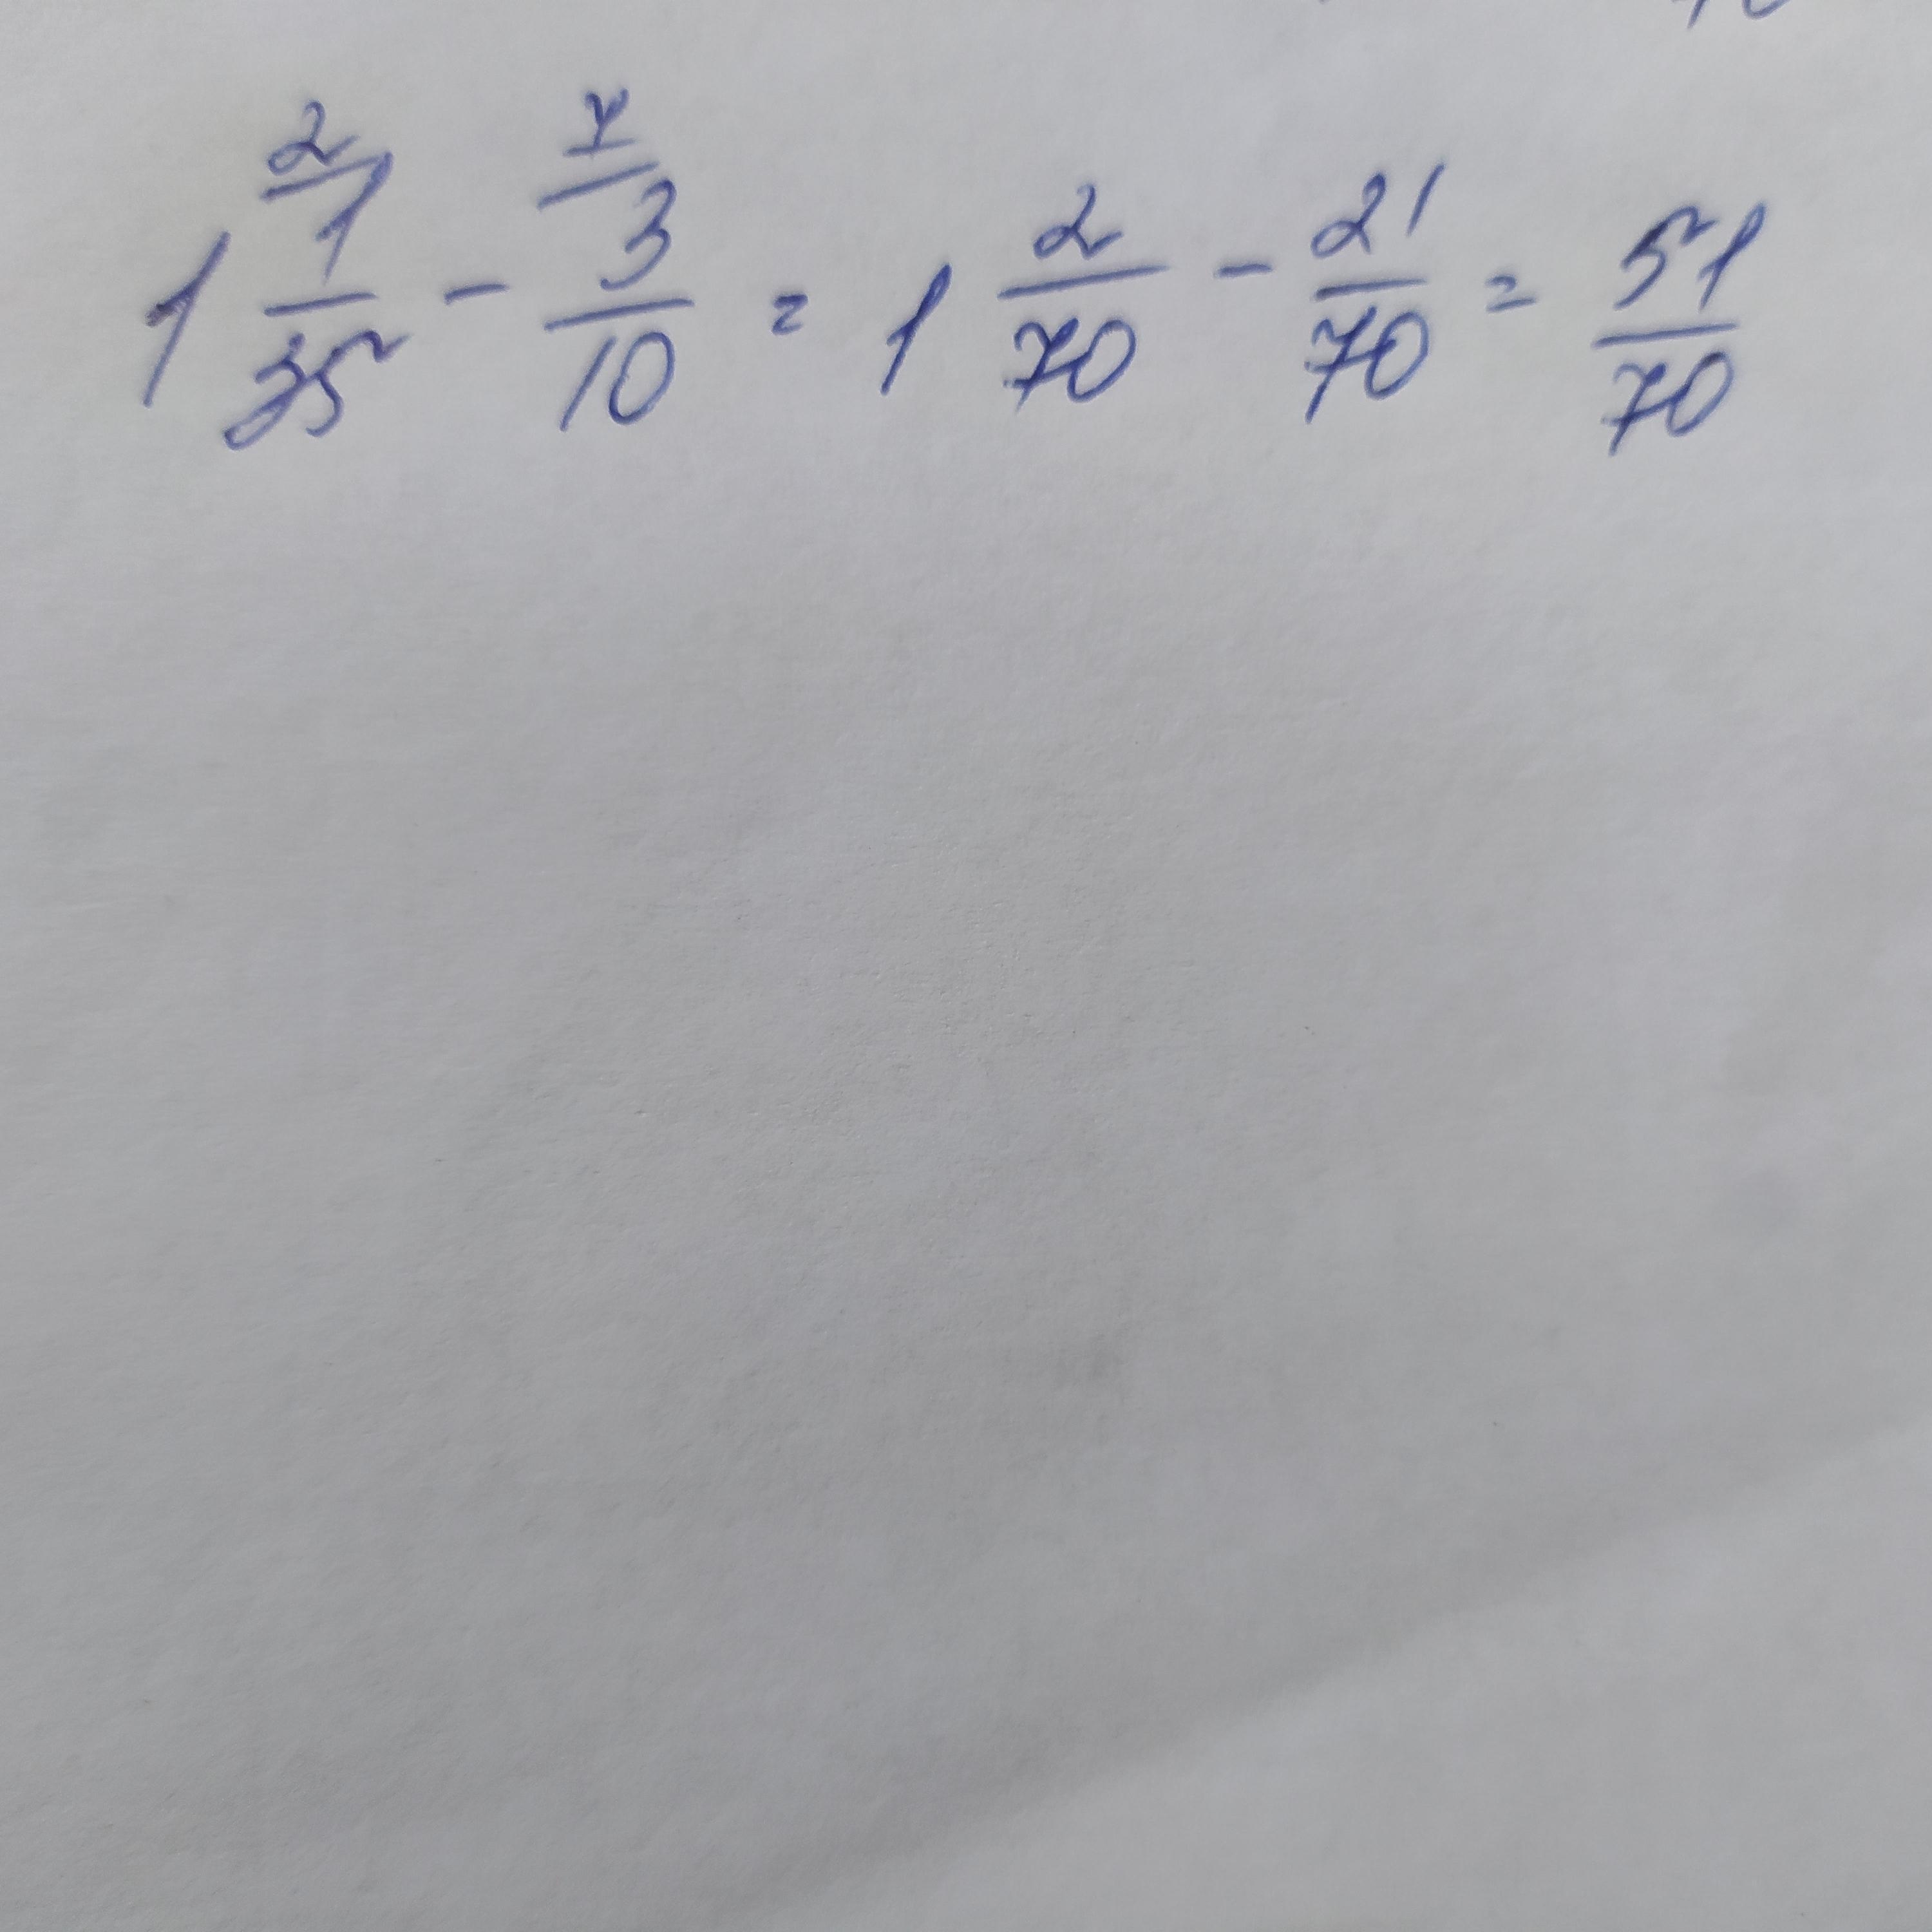 2 7
1 1/35 - 3/10 = 1 2/70 - 21/70 = 51/70